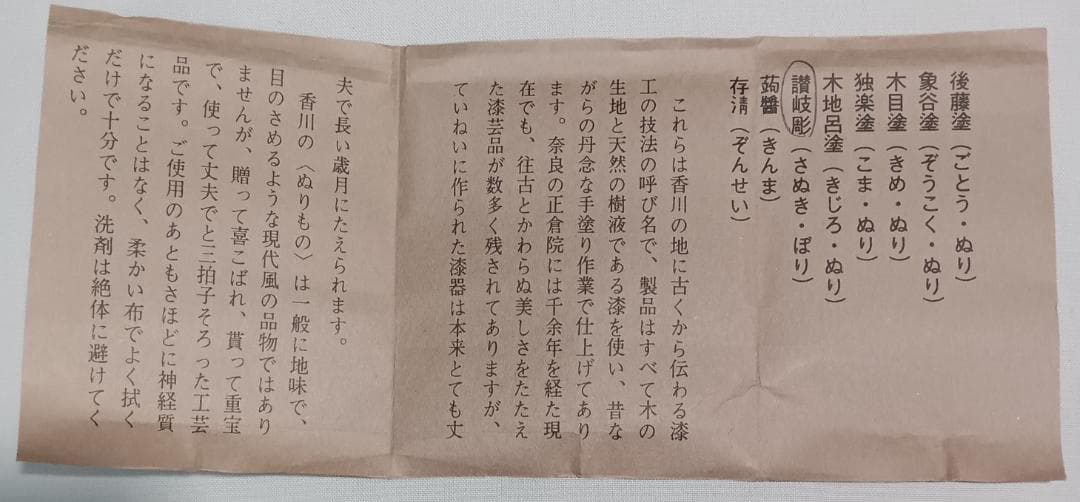 後藤塗（ごとう・ぬり）
象谷塗（ぞうこく・ぬり）
木目塗（きめ・ぬり）
独楽塗（こま・ぬり）
木地呂塗（きじろ・ぬり）
讃岐彫（さぬき・ぼり）
蒟醬（きんま）
存淸（ぞんせい）
これらは香川の地に古くから伝わる漆
工の技法の呼び名で、製品はすべて木の
生地と天然の樹液である漆を使い、昔な
がらの丹念な手塗り作業で仕上げてあり
ます。奈良の正倉院には千余年を経た現
在でも、往古とかわらぬ美しさをたたえ
た漆芸品が数多く残されてありますが、
ていねいに作られた漆器は本来とても丈
夫で長い歳月にたえられます。
香川の〈ぬりもの〉は一般に地味で、
目のさめるような現代風の品物ではあり
ませんが、贈って喜こばれ、貰って重宝
で、使って丈夫でと三拍子そろった工芸
品です。ご使用のあともさほどに神経質
になることはなく、柔かい布でよく拭く
だけで十分です。洗剤は絶体に避けてく
ださい。